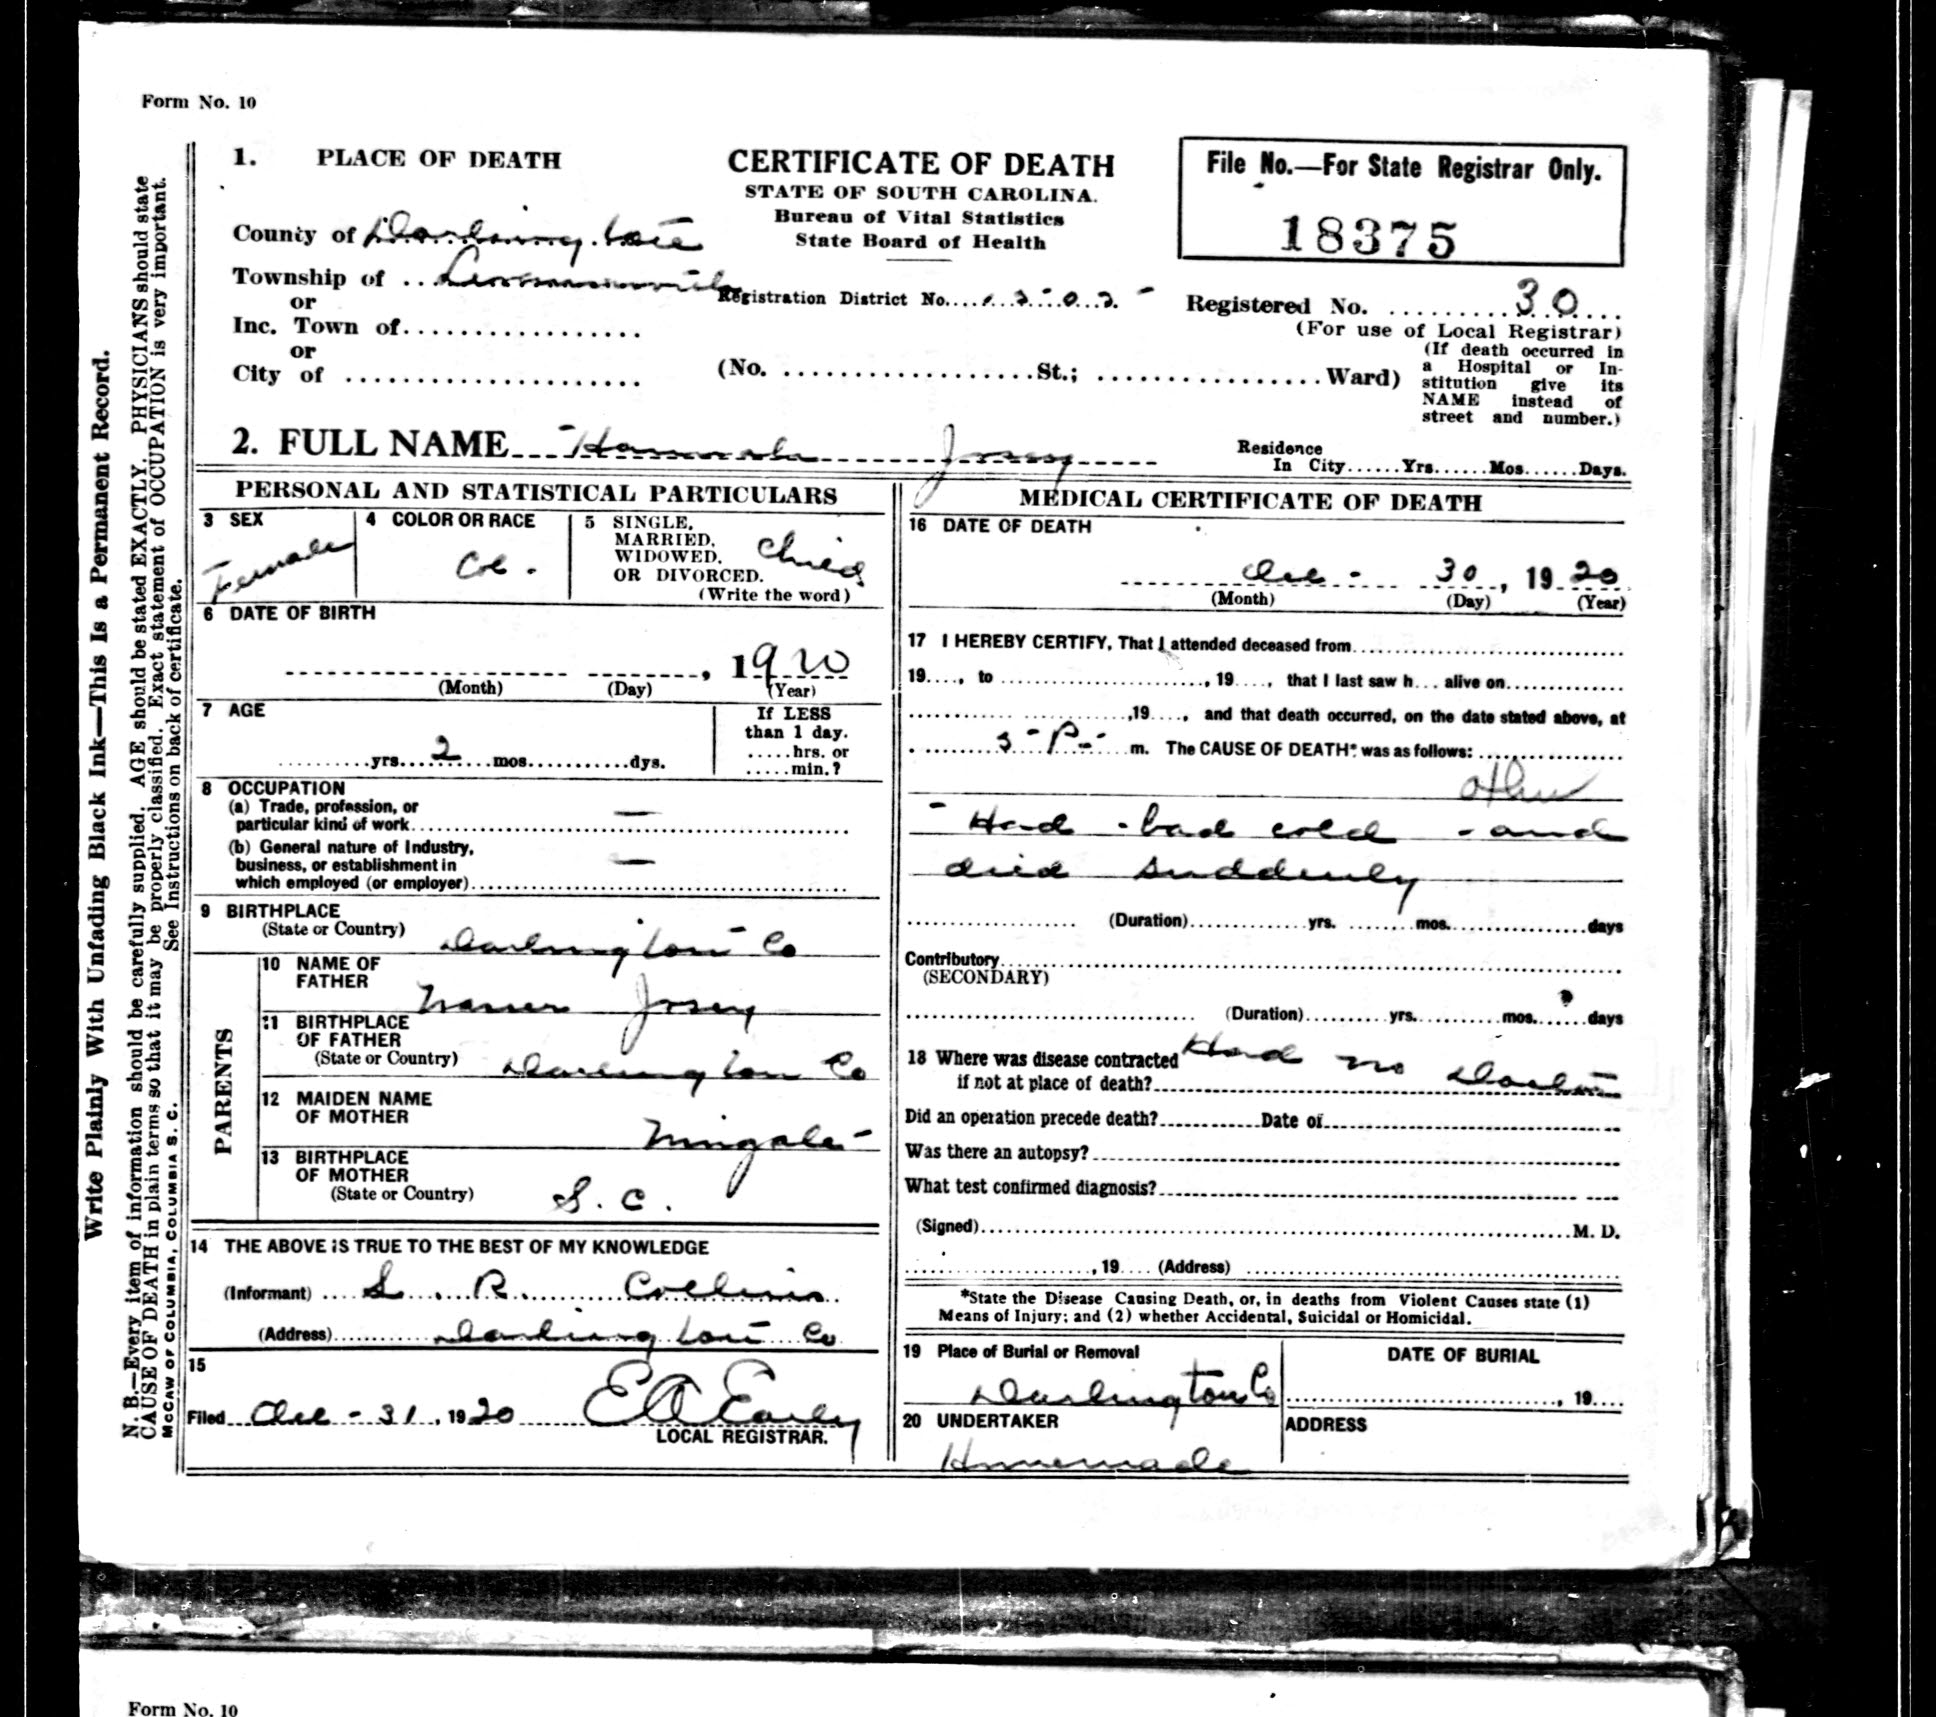 Form No. 10
1. PLACE OF DEATH
CERTIFICATE OF DEATH
STATE OF SOUTH CAROLINA.
Bureau of Vital Statistics
State Board of Health
File No.—For State Registrar Only.
18375
County of Darlington
Township of
or
Inc. Town of
or
City of
Registration District No.
Registered No. 30
(For use of Local Registrar)
(No. St.; Ward)
(If death occurred in
a Hospital or In-
stitution give its
NAME instead of
street and number.)
2. FULL NAME Hannah Josey
Residence
In City Yrs Mos Days.
PERSONAL AND STATISTICAL PARTICULARS
3 SEX
Female
4 COLOR OR RACE
Col.
5 SINGLE,
MARRIED,
WIDOWED,
OR DIVORCED.
(Write the word)
Child
6 DATE OF BIRTH
, 1920
(Month) (Day) (Year)
7 AGE
yrs. 2 mos. dys.
If LESS
than 1 day.
hrs. or
min.?
8 OCCUPATION
(a) Trade, profession, or
particular kind of work —
(b) General nature of Industry,
business, or establishment in —
which employed (or employer)
9 BIRTHPLACE
(State or Country) Darlington Co
PARENTS
10 NAME OF
FATHER Josey
11 BIRTHPLACE
OF FATHER
(State or Country) Darlington Co
12 MAIDEN NAME
OF MOTHER
13 BIRTHPLACE
OF MOTHER
(State or Country) S. C.
14 THE ABOVE IS TRUE TO THE BEST OF MY KNOWLEDGE
(Informant) S. R. Collins
(Address) Darlington Co
15
Filed Dec - 31, 1920 E A Early
LOCAL REGISTRAR.
MEDICAL CERTIFICATE OF DEATH
16 DATE OF DEATH
Dec - 30, 1920
(Month) (Day) (Year)
17 I HEREBY CERTIFY, That I attended deceased from
19 , to , 19 , that I last saw h alive on
,19 , and that death occurred, on the date stated above, at
P. m. The CAUSE OF DEATH* was as follows:
other
Had - bad cold - and
died suddenly
(Duration) yrs. mos. days
Contributory
(SECONDARY)
(Duration) yrs. mos. days
18 Where was disease contracted Had no Doctor
if not at place of death?
Did an operation precede death? Date of
Was there an autopsy?
What test confirmed diagnosis?
(Signed) M. D.
, 19 (Address)
*State the Disease Causing Death, or, in deaths from Violent Causes state (1)
Means of Injury; and (2) whether Accidental, Suicidal or Homicidal.
19 Place of Burial or Removal
Darlington Co
DATE OF BURIAL
, 19
20 UNDERTAKER
Homemade
ADDRESS
Write Plainly With Unfading Black Ink—This Is a Permanent Record.
N. B.—Every item of information should be carefully supplied. AGE should be stated EXACTLY. PHYSICIANS should state
CAUSE OF DEATH in plain terms so that it may be properly classified. Exact statement of OCCUPATION is very important.
See Instructions on back of certificate.
McCAW OF COLUMBIA, COLUMBIA S. C.
Form No. 10